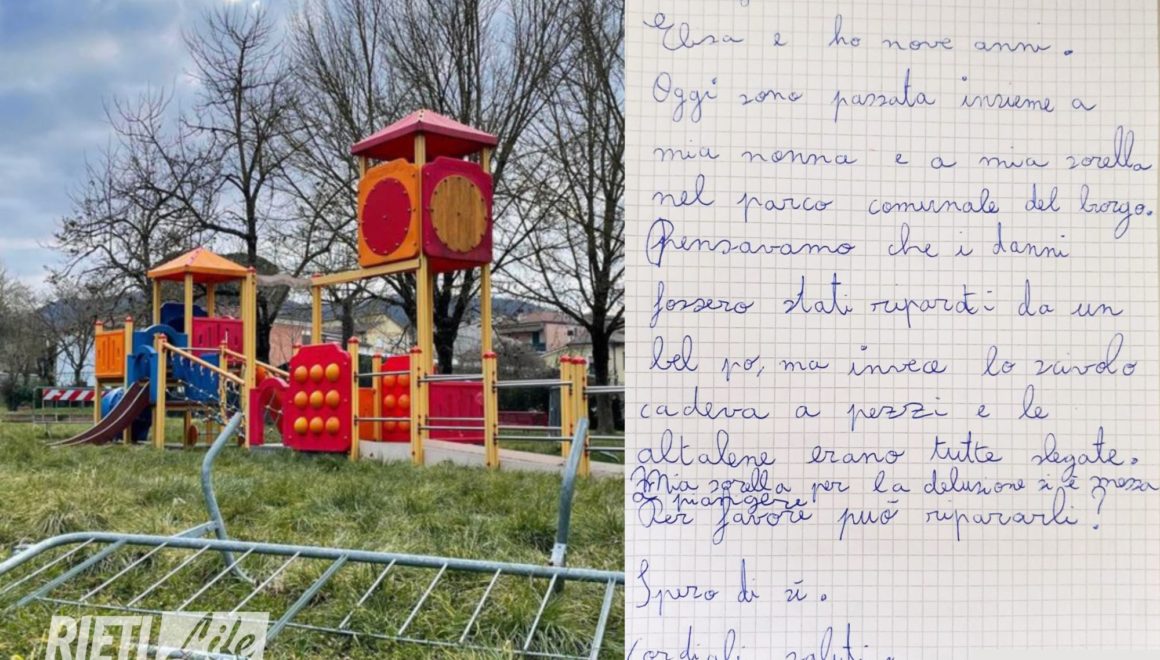 Elisa e ho nove anni.
Oggi sono passata insieme a
mia nonna e a mia sorella
nel parco comunale del borgo.
Pensavamo che i danni
fossero stati riparati da un
bel po, ma invece lo scivolo
cadeva a pezzi e le
altalene erano tutte slegate.
Mia sorella per la delusione si è messa
a piangere
Per favore può ripararli?
Spero di sì.
Cordiali saluti.
RIETI Life